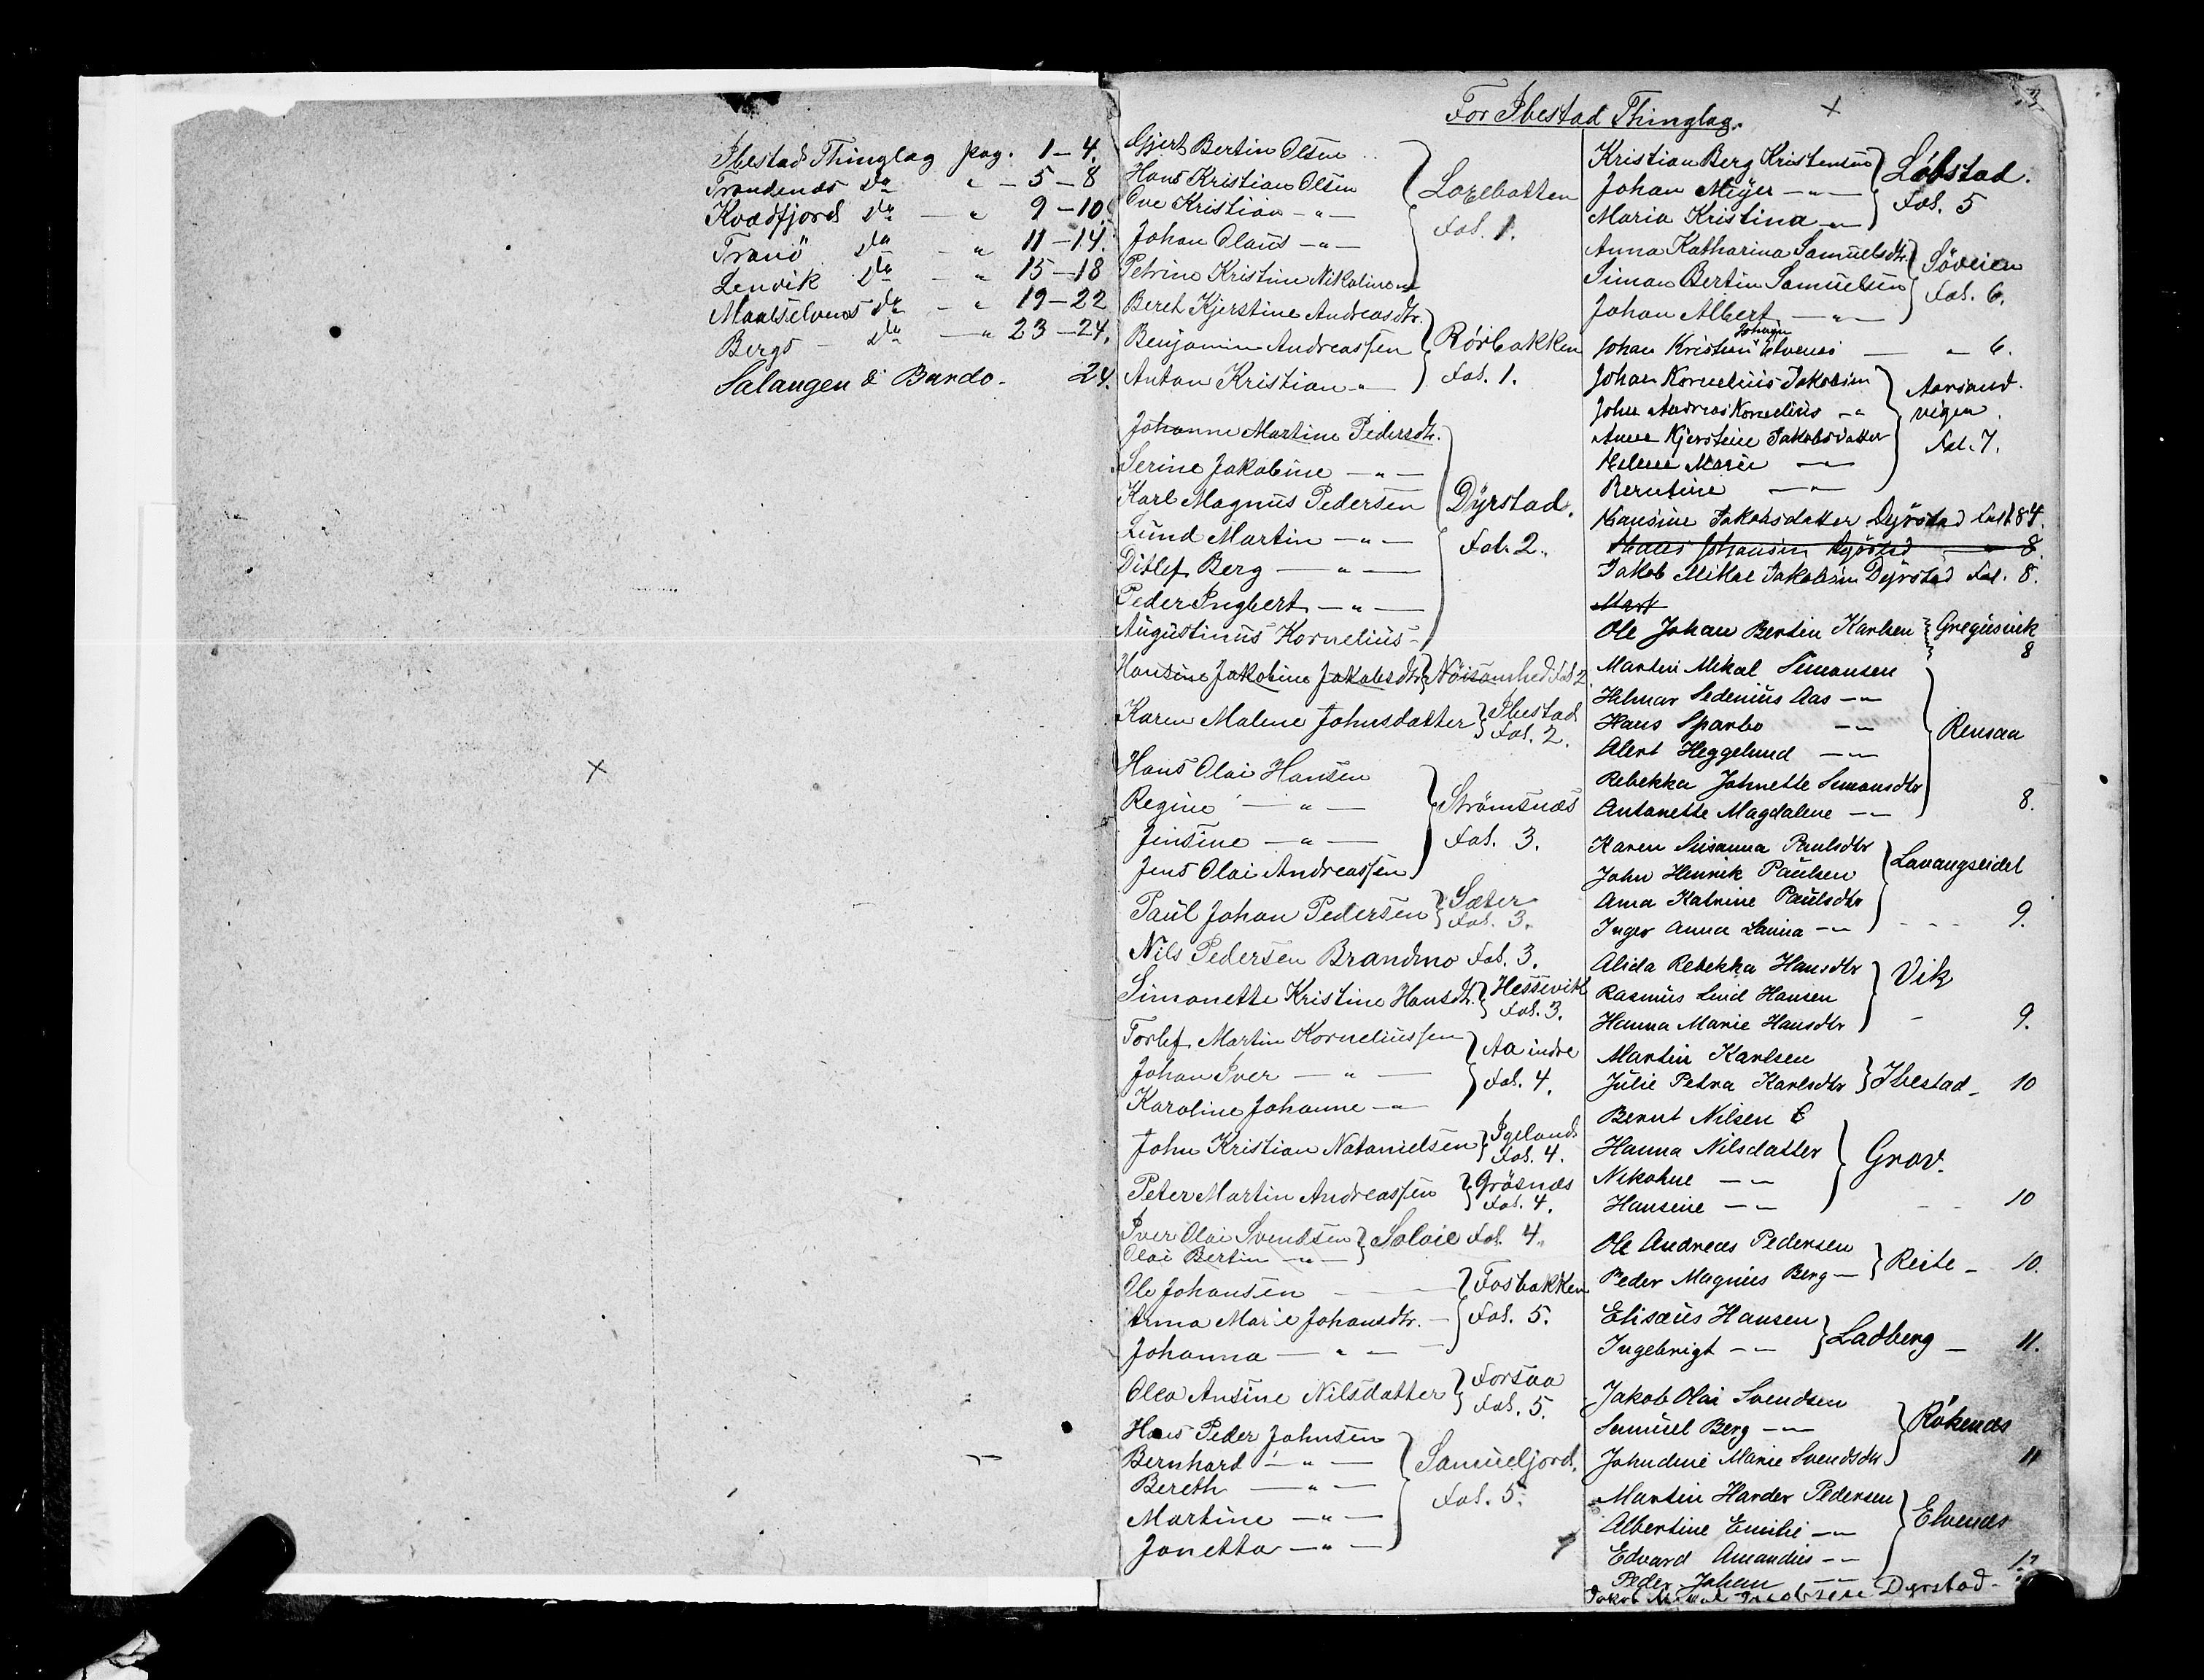 Ibestad Thinglag pag. 1 – 4.
Trondenæs do " – 5 – 8
Kvædfjord do – " 9 – 10.
Tranö do – " 11 – 14.
Lenvik do – " 15 – 18
Maalselvens do – " 19 – 22
Bergs – do – " 23 – 24.
Salangen & Bardo – 24.
3
For Ibestad Thinglag.
Gjert Bertin Olsen
Hans Kristian Olsen
Ove Kristian – " –
Johan Olaus – " –
Petrine Kristine Nikoline – " –
Fol. 1.
Bereth Kjerstine Andreasdtr.
Benjamin Andreassen
Anton Kristian – " –
Rørbakken
Fol. 1.
Johanne Martine Pedersdtr.
Serine Jakobine – " –
Karl Magnus Pedersen
Lund Martin – " –
Ditlef Berg – " –
Peder Ingbert – " –
Augustinus Kornelius –
Dyrstad.
Fol. 2.
Hansine Jakobine Jakobsdtr. Nöisomhed Fol. 2
Karen Malene Johnsdatter Ibestad
Fol. 2.
Hans Olai Hansen
Regine – " –
Jensine – " –
Jens Olai Andreassen
Strömsnæs
Fol. 3.
Paul Johan Pedersen Sæter
Fol. 3.
Nils Pedersen Brandmo Fol. 3.
Simonette Kristine Hansdtr. Hessevik
Fol. 3.
Torlef Martin Korneliussen
Johan Iver – " –
Karoline Johanne – " –
Aa indre
Fol. 4.
John Kristian Natanielsen Igeland
Fol. 4.
Peter Martin Andreassen Gråsnæs
Fol. 4.
Iver Olai Svendsen
Olai Bertin – " –
Fol. 4.
Ole Johansen
Anna Marie Johansdtr. –
Johanna – " –
Fosbakken
Fol. 5.
Olea Ansine Nilsdatter Forsaa
Fol. 5.
Hans Peder Johnsen
Bernhard – " –
Bereth – " –
Martine – " –
Jonetta – " –
Samueljord.
Fol. 5.
Kristian Berg Kristensen
Johan Meyer – " –
Maria Kristina – " –
Löbstad.
Fol. 5
Anna Katharina Samuelsdtr.
Simon Bertin Samuelsen
Johan Albert – " –
Söveien
Fol. 6.
Johan Kristian Johan Elvenes – " 6.
Johan Kornelius Jakobsen
John Andreas Kornelius – "
Anne Kjerstine Jakobsdatter
Helene Marie – " –
Berntine – " –
Aarsand
vigen.
Fol. 7.
Hansine Jakobsdatter Dyrstad Fol 184.
Hans Johansen Dyrstad – " 8.
Jakob Mikal Jakobsen Dyrstad Fol. 8.
Mart
Ole Johan Bertin Karlsen Gregusvik
8
Martin Mikal Simonsen
Hilmar Sedenius Aas – " –
Hans Sparbo – " –
Alert Heggelund – " –
Rebekka Johnette Simonsdtr
Antonette Magdalene – " –
Rensaa
8.
Karen Susanna Paulsdtr
John Henrik Paulsen
Anna Katrine Paulsdtr
Inger Anna Laura – " –
Lavangseidet
9.
Alida Rebekka Hansdtr
Rasmus Lind Hansen
Hanna Marie Hansdtr
Vik
9.
Martin Karlsen
Julie Petra Karlsdtr Ibestad – 10
Bernt Nilsen
Hanna Nilsdatter
Nikoline – " –
Hansine – " –
Grov.
10
Ole Andreas Pedersen
Peder Magnus Berg – Reite – 10.
Elisæus Hansen
Ingebrigt – " – Ladberg – 11.
Jakob Olai Svendsen
Samuel Berg – " –
Johndine Marie Svendsdtr
Rökenæs
11
Martin Harder Pedersen
Albertine Emilie – " –
Edvard Amandus – " –
Peder Johan – " –
Elvenæs
Jakob Mikal Jacobsen Dyrstad –